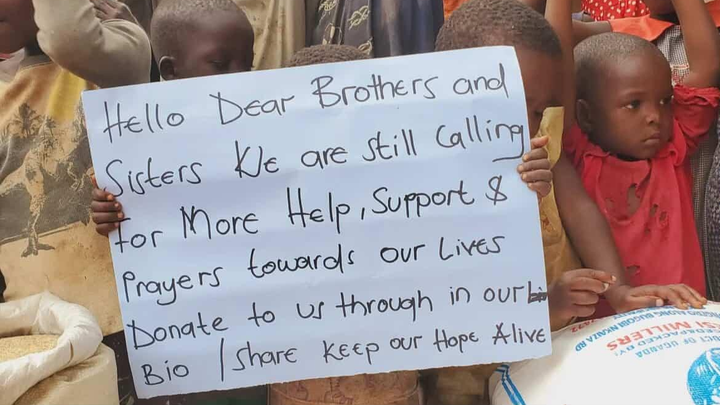 Hello Dear Brothers and
Sisters We are still Calling
for More Help, Support &
Prayers towards our Lives
Donate to us through in our
Bio / share Keep our Hope Alive
UCT OF UGANDA
PACKED BY:
MILLERS